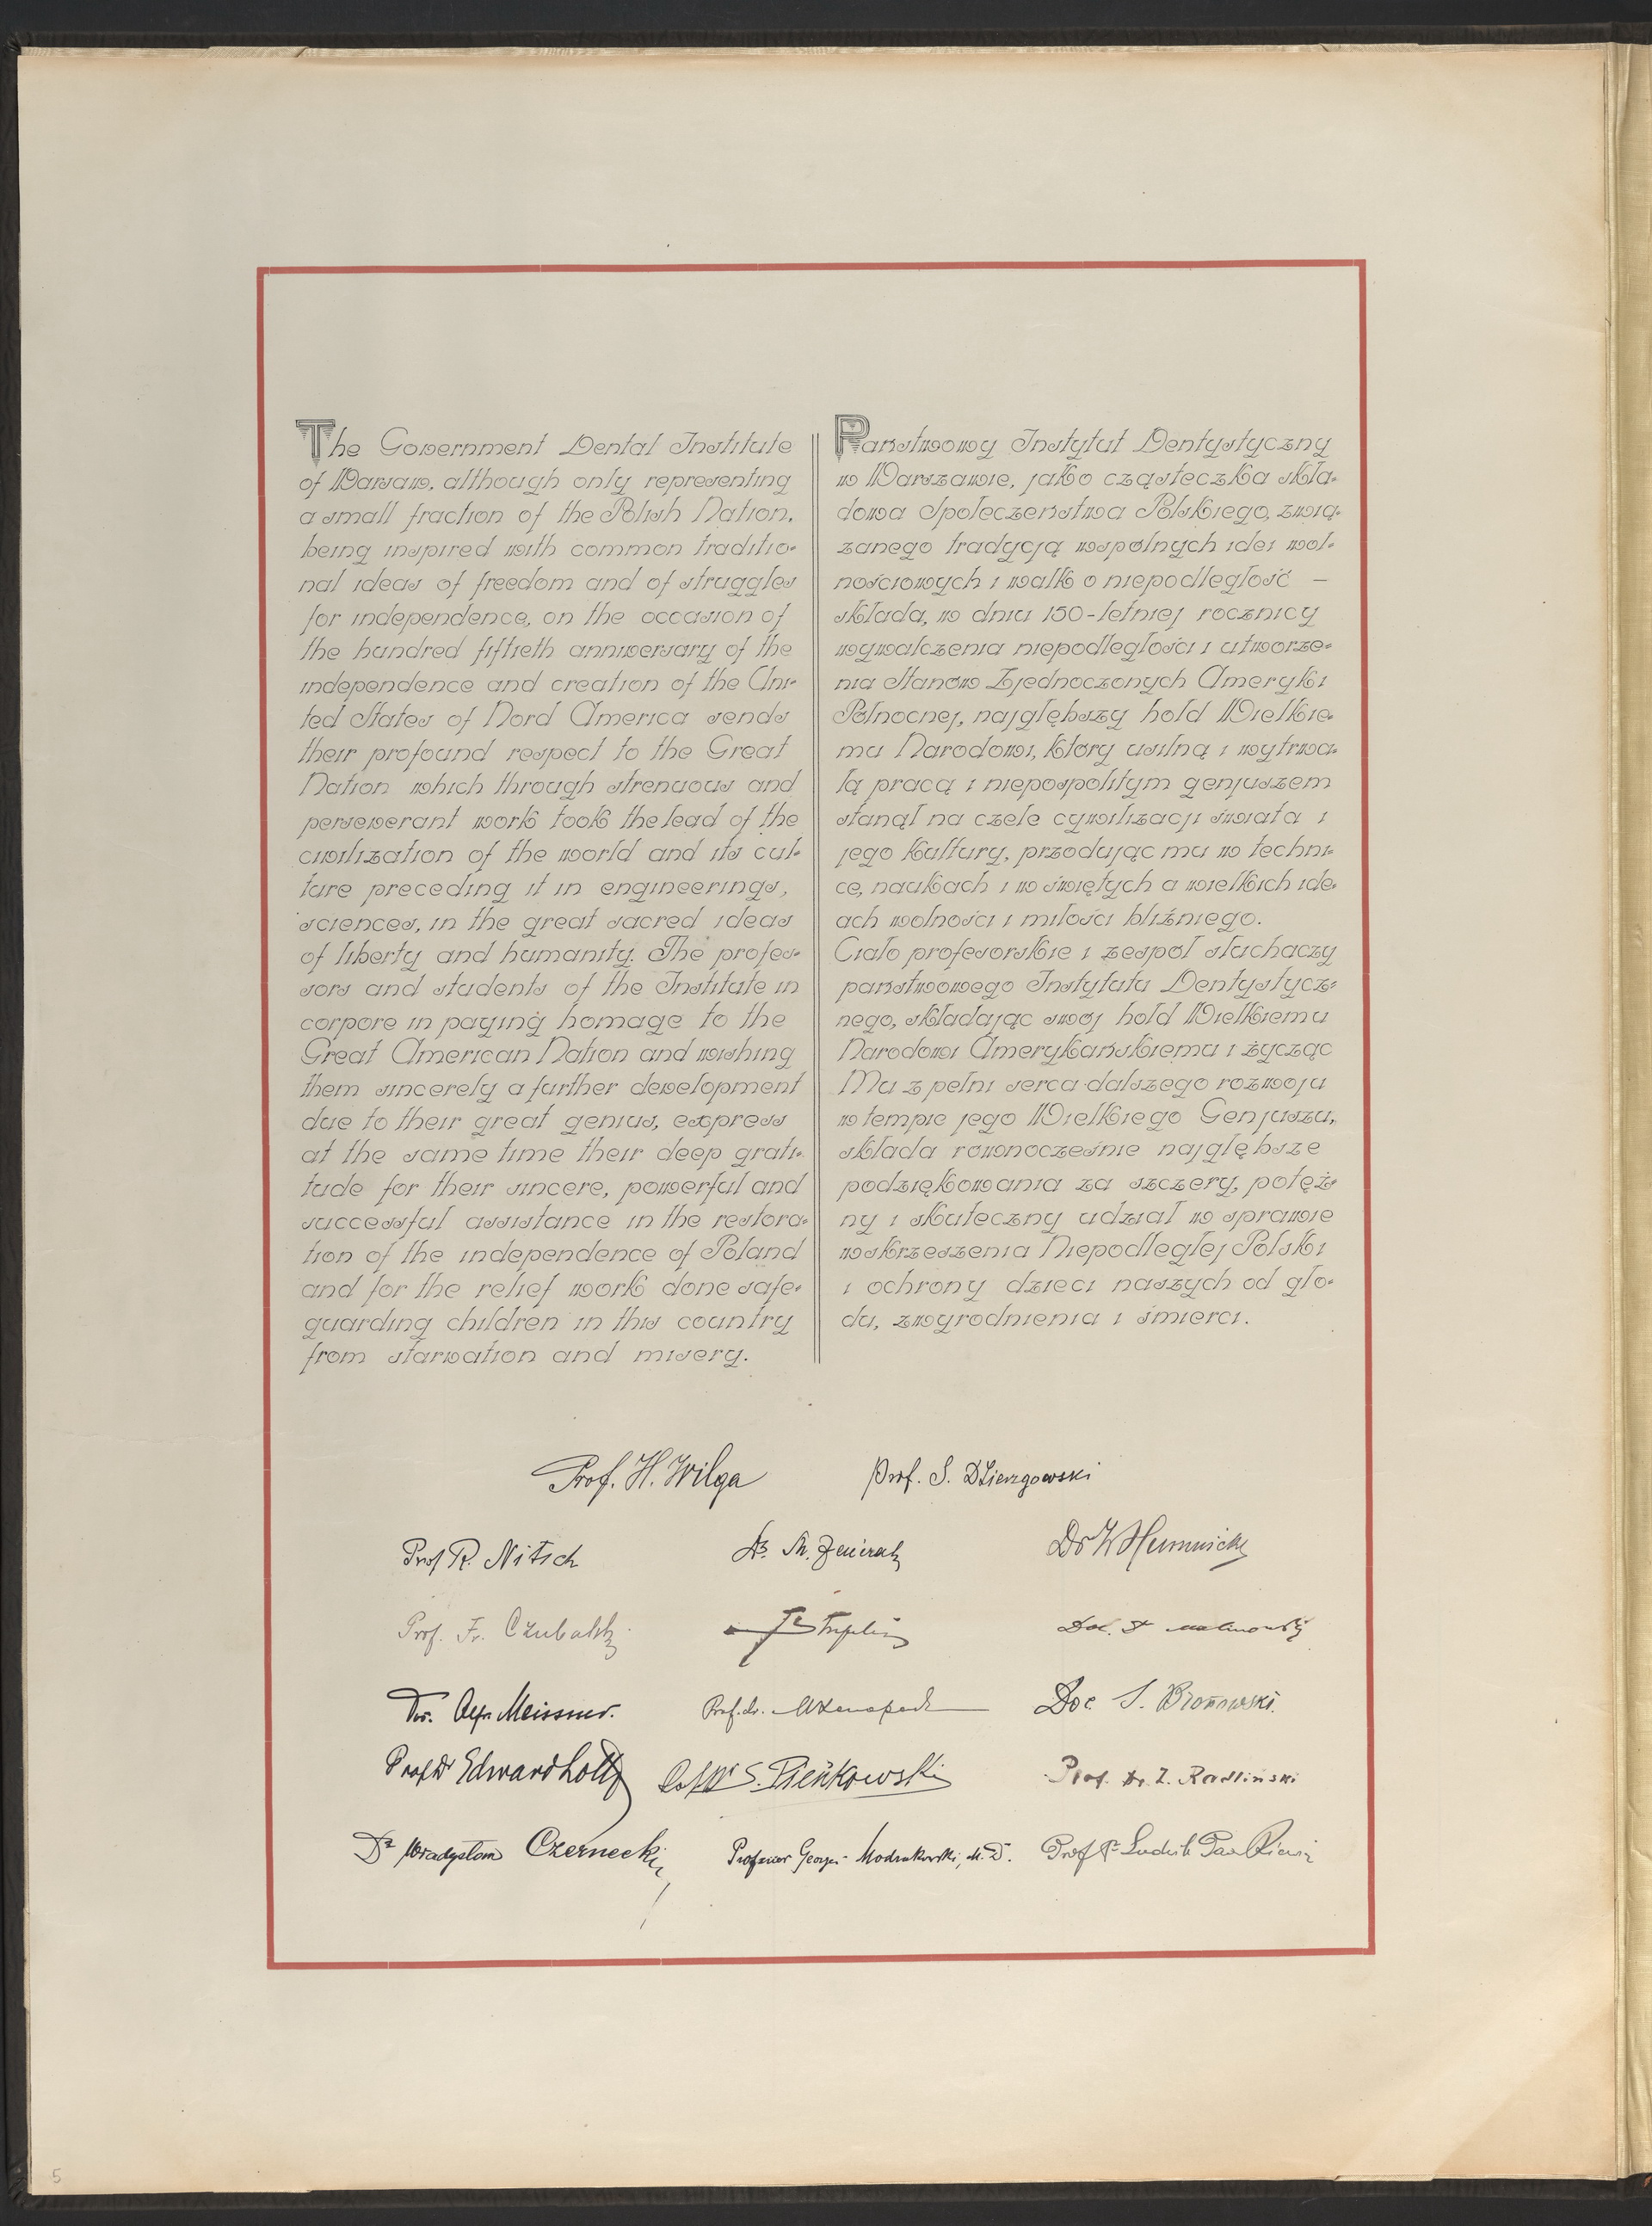 The Government Dental Institute
of Warsaw, although only representing
a small fraction of the Polish Nation,
being inspired with common traditio-
nal ideas of freedom and of struggles
for independence, on the occasion of
the hundred fiftieth anniversary of the
independence and creation of the Uni-
ted States of Nord America sends
their profound respect to the Great
Nation which through strenuous and
perseverant work took the lead of the
civilization of the world and its cul-
ture preceding it in engineerings,
sciences, in the great sacred ideas
of liberty and humanity. The profes-
sors and students of the Institute in
corpore in paying homage to the
Great American Nation and wishing
them sincerely a further development
due to their great genius, express
at the same time their deep grati-
tude for their sincere, powerful and
successful assistance in the restora-
tion of the independence of Poland
and for the relief work done safe-
guarding children in this country
from starvation and misery.
Państwowy Instytut Dentystyczny
w Warszawie, jako cząsteczka skła-
dowa Społeczeństwa Polskiego, zwią-
zanego tradycją wspólnych idei wol-
nościowych i walk o niepodległość —
składa, w dniu 150-letniej rocznicy
wywalczenia niepodległości i utworze-
nia Stanów Zjednoczonych Ameryki
Północnej, najgłębszy hołd Wielkie-
mu Narodowi, który usilną i wytrwa-
łą pracą i niepospolitym genjuszem
stanął na czele cywilizacji świata i
jego kultury, przodując mu w techni-
ce, naukach i w świętych a wielkich ide-
ach wolności i miłości bliźniego.
Ciało profesorskie i zespół słuchaczy
państwowego Instytutu Dentystycz-
nego, składając swój hołd Wielkiemu
Narodowi Amerykańskiemu i życząc
Mu z pełni serca dalszego rozwoju
w tempie jego Wielkiego Genjuszu,
składa równocześnie najgłębsze
podziękowania za szczery, potęż-
ny i skuteczny udział w sprawie
wskrzeszenia Niepodległej Polski
i ochrony dzieci naszych od gło-
du, zwyrodnienia i śmierci.
Prof. H. Wilga
Prof. S. Dzierzgowski
Prof R. Nitsch
Dr. M. Zeńczak
Dr W Humnicki
Prof. Fr. Czubalski
Doc. Malinowski
Dr. Alfr. Meissner.
Prof. dr.
Doc. S. Bronowski.
Prof Dr Edward Loth
S. Pieńkowski
Prof. Dr. Z. Radliński
Dr Władysław Czernecki
Professor George Modrakowski, M. D.
Prof Dr Ludwik Paszkiewicz
5